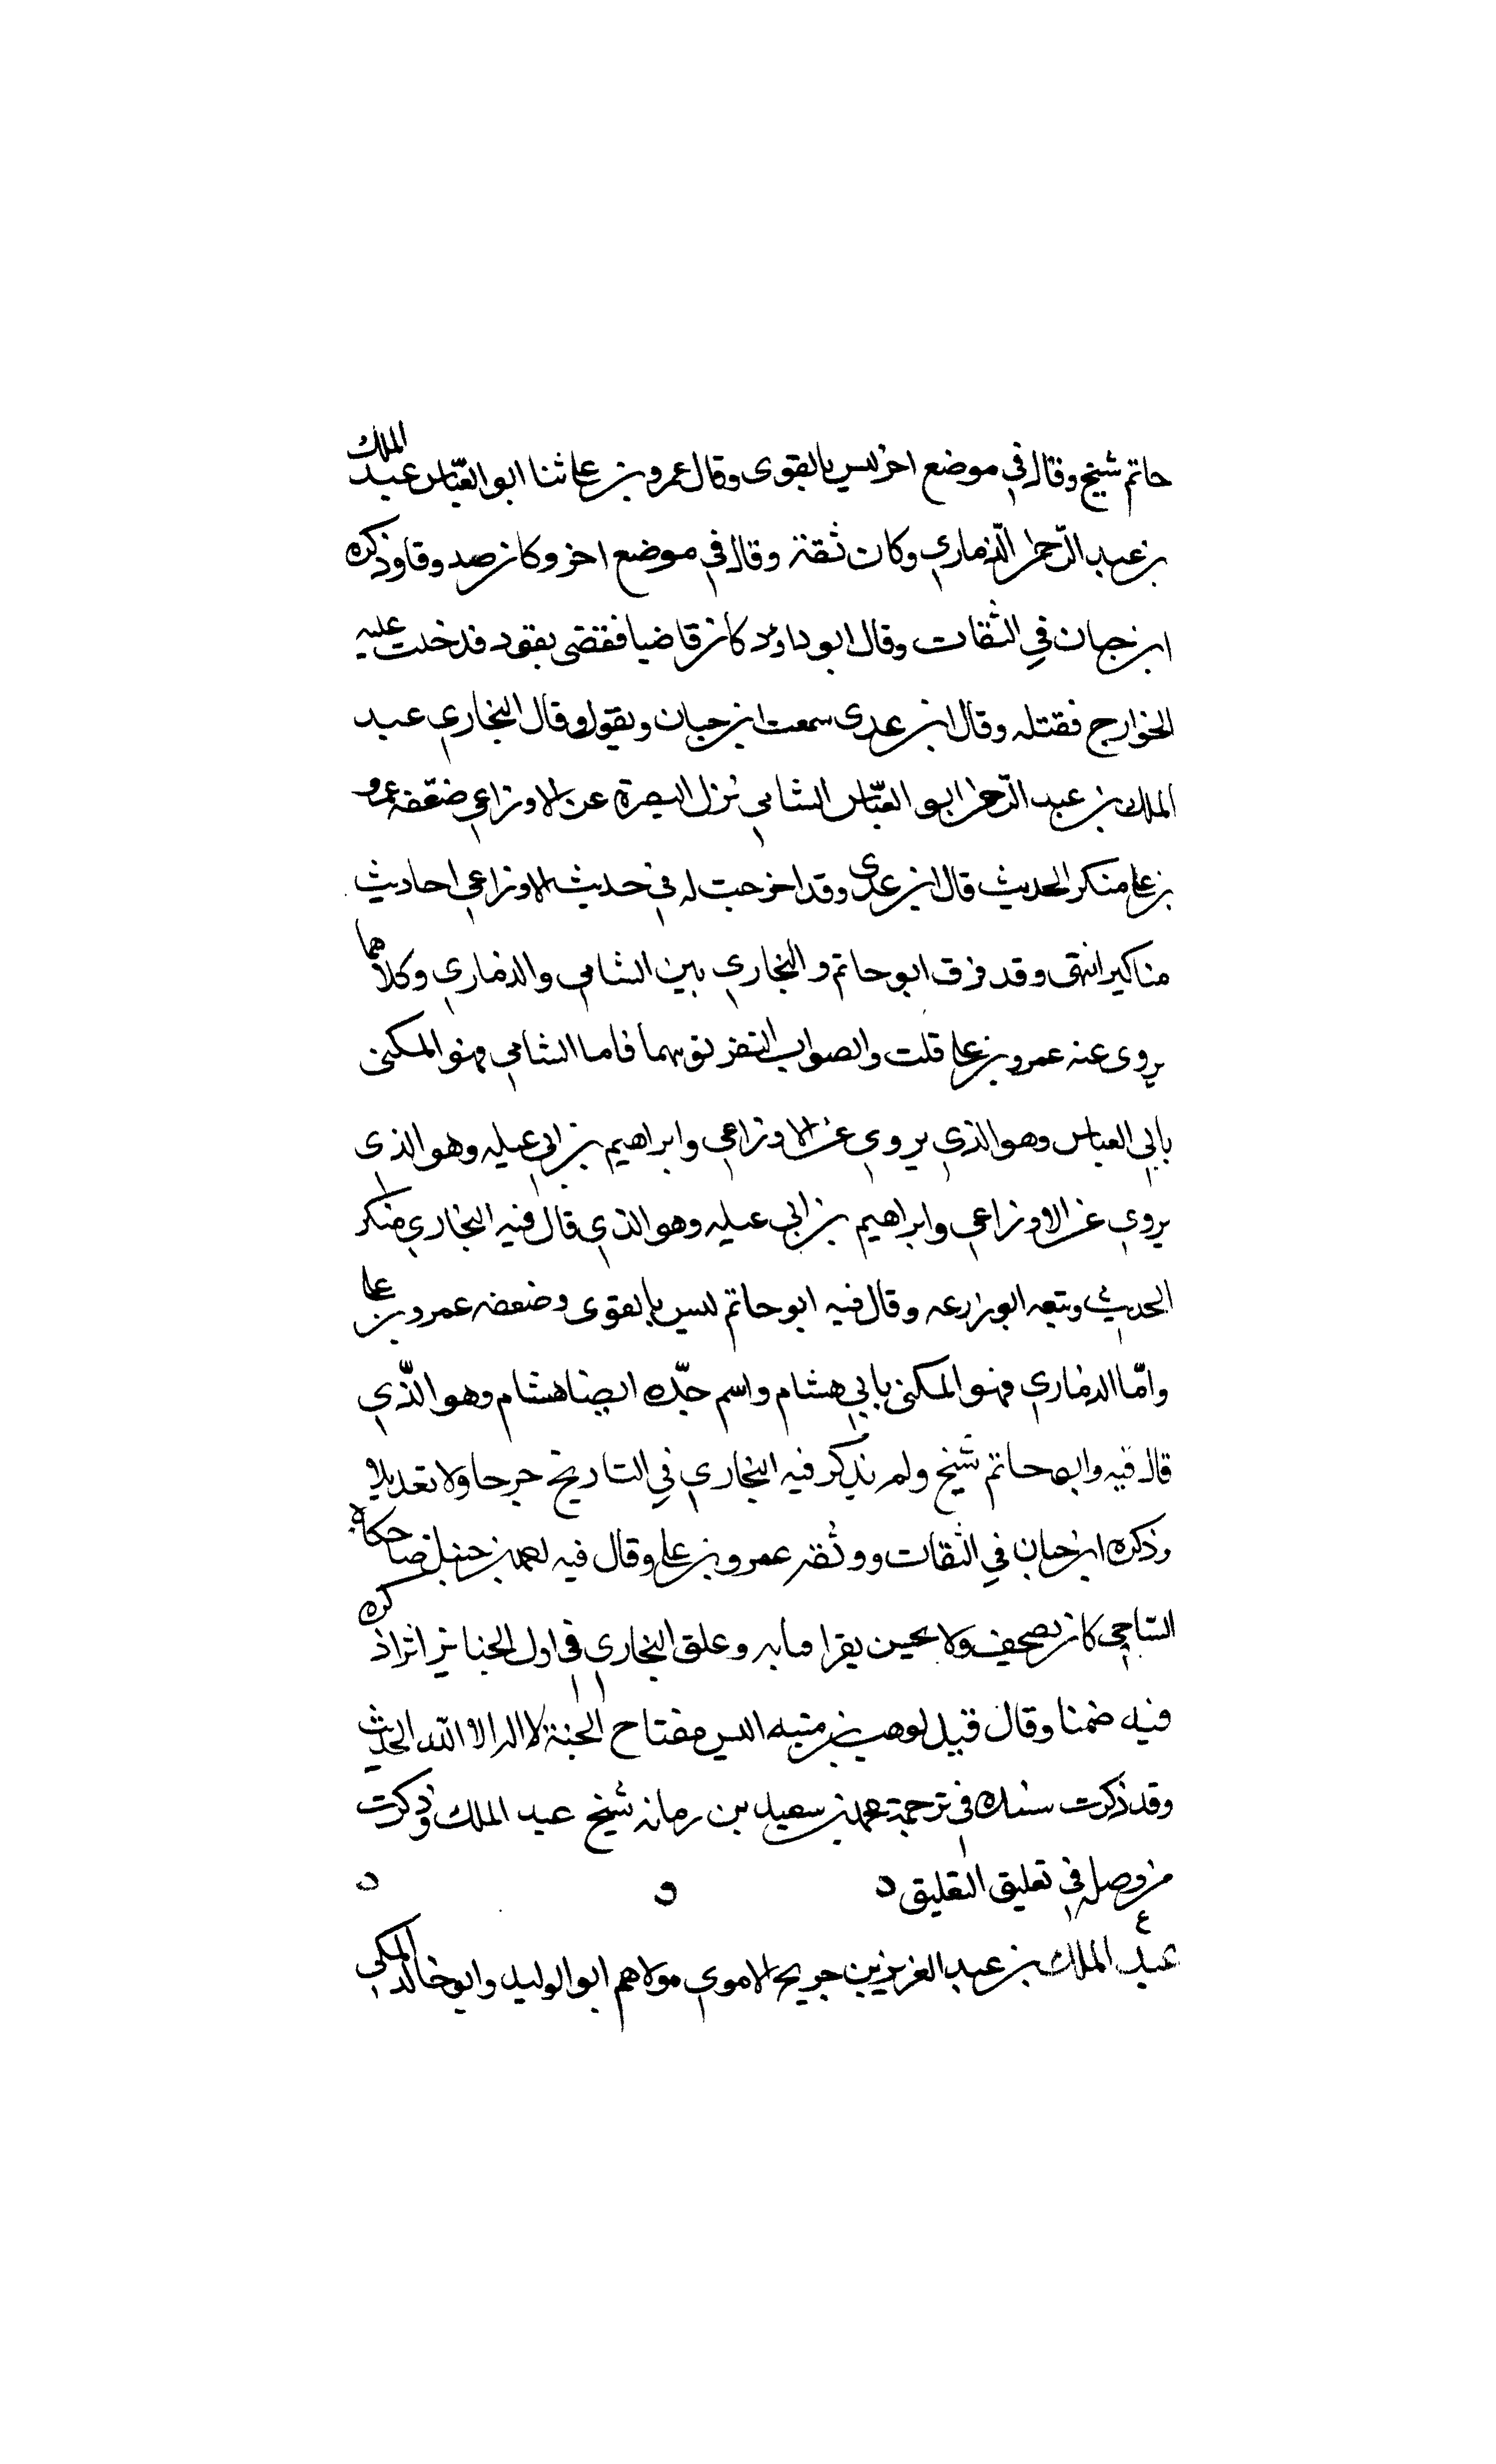 حاتم شيخ وقال في موضع اخر ليس بالقوى وقال عمرو بن على ثنا ابو العبّاس عبد الملك
بن عبد الرّحمن الذّماري وكان ثقة وقال في موضع اخر وكان صدوقا وذكره
ابن حبان في الثقات وقال ابو داود كان قاضيا فقضى بقود فدخلت عليه
الخوارج فقتله وقال ابن عدى سمعت ابن حبان ويقول وقال البخاري عبد
الملك بن عبد الرّحمن ابو العبّاس الشامي نزل البصرة عن الاوزاعي ضعّفه عمرو
بن على منكر الحديث قال ابن عدى وقد اخرجت له في حديث الاوزاعي احاديث
مناكير انتهى وقد فرق ابو حاتم والبخاري بين الشامي والذماري وكلاهما
يروى عنه عمرو بن على قلت والصواب التفريق بينهما فاما الشامي فهو المكنى
بابي العباس وهو الذي يروي عن الاوزاعي وابراهيم بن ابي عبله وهو الذى
يروي عن الاوزاعي وابراهيم بن ابي عبله وهو الذي قال فيه البخاري منكر
الحديث وتبعه ابو زرعه وقال فيه ابو حاتم ليس بالقوى وضعفه عمرو بن على
وامّا الذماري فهو المكنى بابي هشام واسم جدّه ايضا هشام وهو الذّي
قال فيه وابو حاتم شيخ ولم يذكر فيه البخاري في التاريخ جرحا ولا تعديلا
وذكره ابن حبان في الثقات ووثقه عمرو بن على وقال فيه احمد بن حنبل فيما حكاه
السّاجي كان يصحف ولا يحسن يقرا ما به وعلق البخاري في اول الجنايز اثرا ذكره
فيه ضمنا وقال قيل لوهب بن منبه اليس مفتاح الجنة لا اله الا الله الحديث
وقد ذكرت سنده في ترجمة محمد بن سعيد بن رمانه شيخ عبد الملك وذكرت
من وصله في تعليق التعليق
ع
عبد الملك بن عبد العزيز بن جريج الاموي مولاهم ابو الوليد وابو خالد المكي